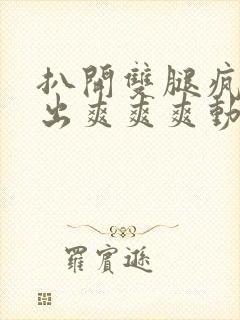 扒開雙腿瘋
出爽爽爽動
羅賓遜